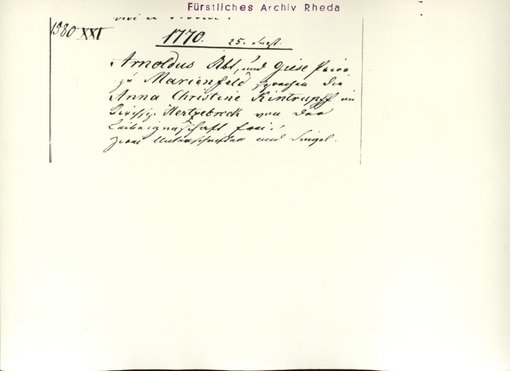 Fürstliches Archiv Rheda
1380 XXI
1770. 25. Sept.
Arnoldus Abt, und Giese Prior
zu Marienfeld sprechen die
Anna Christine Kintrupff im
Kirchsp. Hertzebrock von der
Leibeigenschaft frei.
Zwei Unterschriften und Siegel.